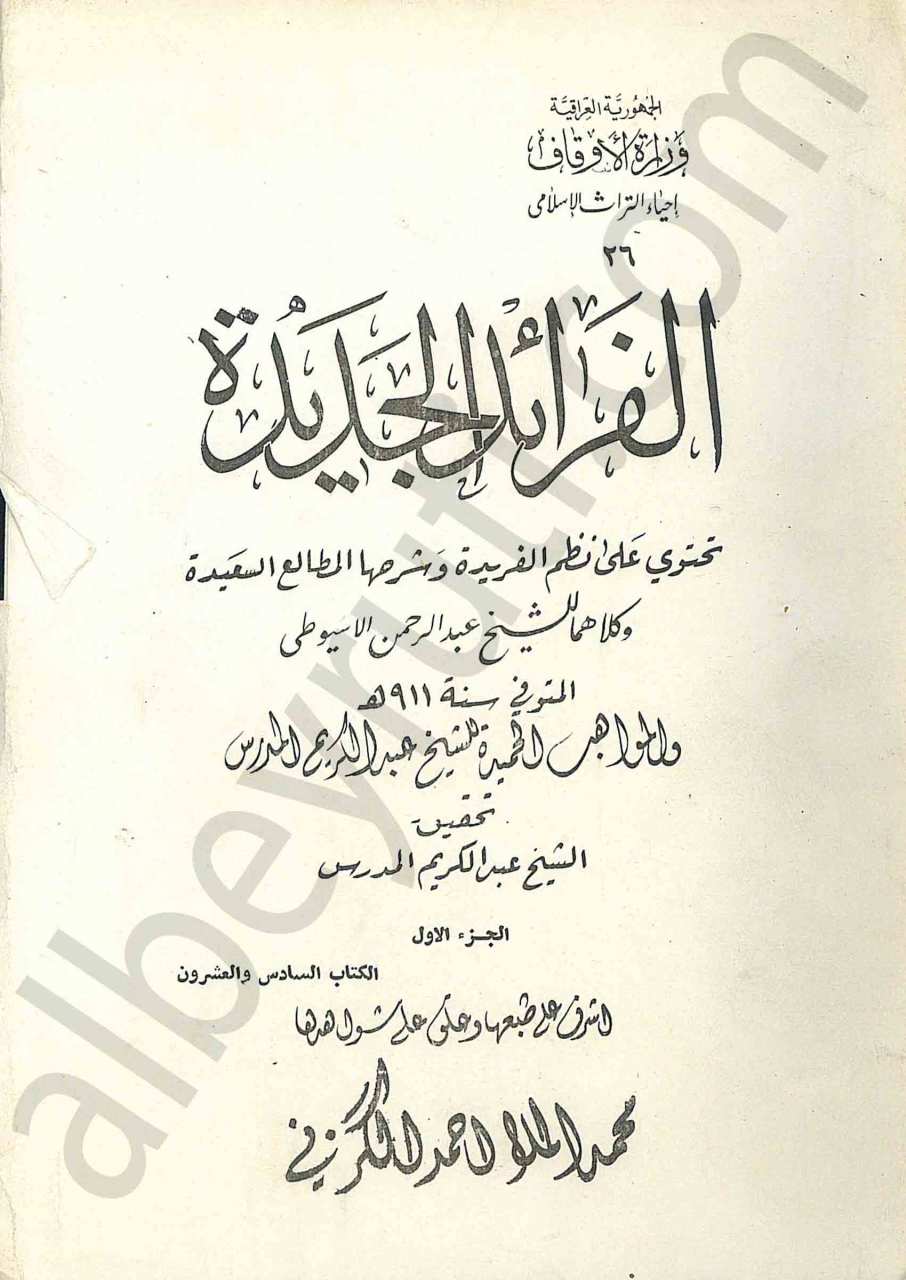 الجمهُوريَّة العِراقيَّة
وَزارَة الأَوقاف
إحيَاء التراث الإسلامى
٢٦
الفَرائِدُ الجَدِيدَة
تحتوي عَلى نظم الفريدة وَشرحها المطالع السعَيدة
وكلاهما للشيخ عبد الرحمن الاسيوطى
المتوفي سنة ٩١١هـ
والمواهب الحميدة للشيخ عبد الكريم المدرس
تحقيق
الشيخ عبد الكريم المدرس
الجزء الاول
الكتاب السادس والعشرون
اشرف على طبعها وعلق على شواهدها
محمد الملا احمد الكزني
albeyruti.com